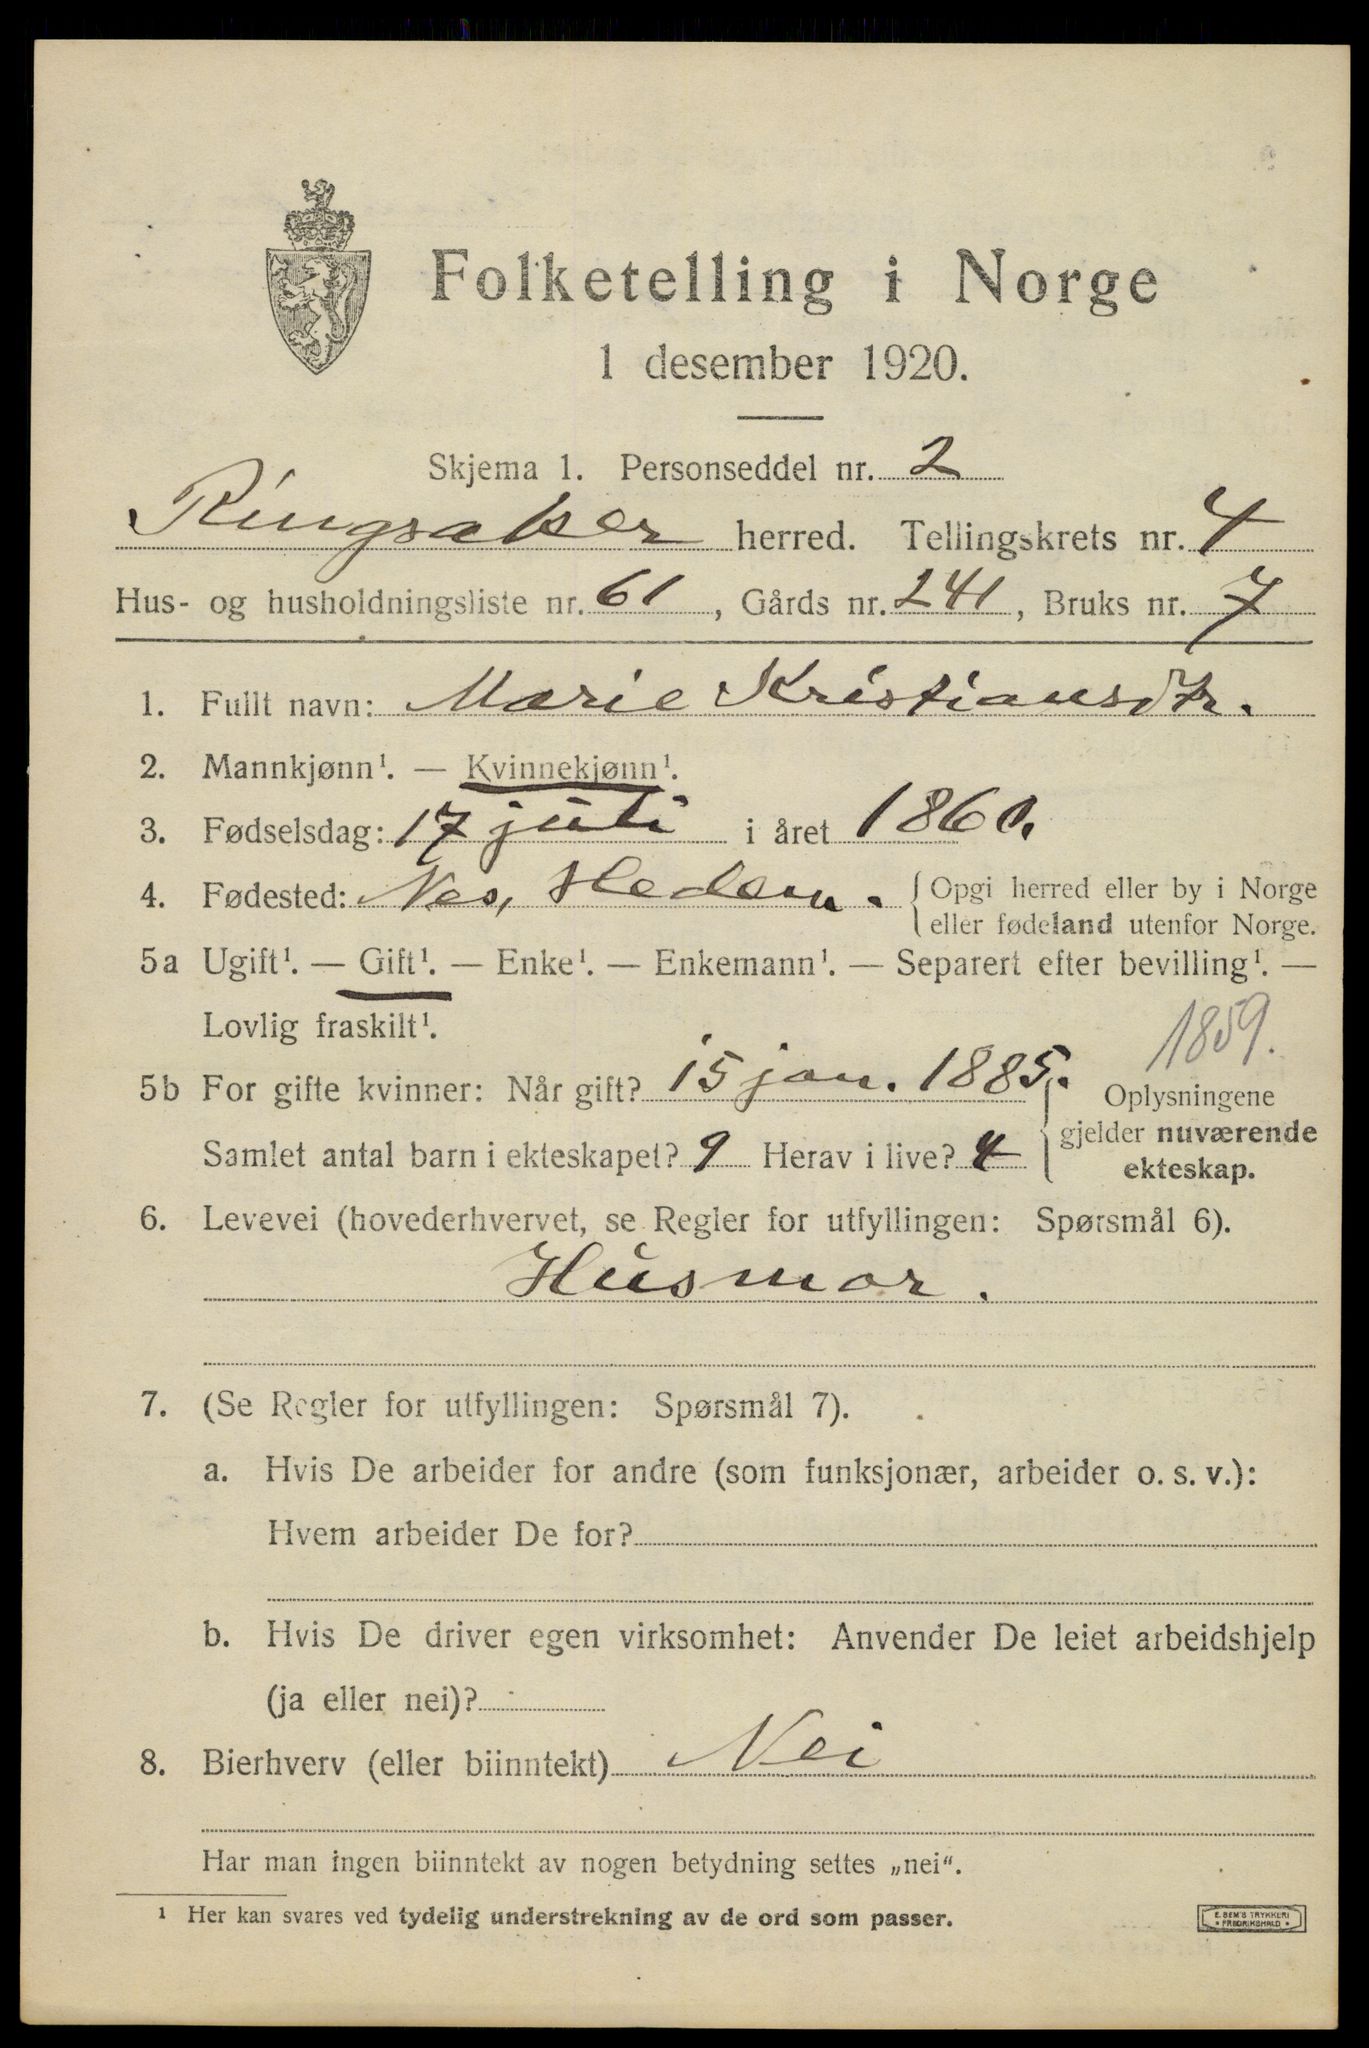 Folketelling i Norge
1 desember 1920.
Skjema 1. Personseddel nr. 2
Ringsaker herred. Tellingskrets nr. 4
Hus- og husholdningsliste nr. 61, Gårds nr. 241, Bruks nr. 7
1. Fullt navn: Marie Kristiansdtr.
2. Mannkjønn¹. — Kvinnekjønn¹.
3. Fødselsdag: 17 juli i året 1860.
4. Fødested: Nes, Hedem. { Opgi herred eller by i Norge
eller fødeland utenfor Norge.
5a Ugift¹. — Gift¹. — Enke¹. — Enkemann¹. — Separert efter bevilling¹. —
Lovlig fraskilt¹.
1859.
5b For gifte kvinner: Når gift? 15 jan. 1885. { Oplysningene
gjelder nuværende
Samlet antal barn i ekteskapet? 9 Herav i live? 4
ekteskap.
6. Levevei (hovederhvervet, se Regler for utfyllingen: Spørsmål 6).
Husmor.
7. (Se Regler for utfyllingen: Spørsmål 7).
a. Hvis De arbeider for andre (som funksjonær, arbeider o. s. v.):
Hvem arbeider De for?
b. Hvis De driver egen virksomhet: Anvender De leiet arbeidshjelp
(ja eller nei)?
8. Bierhverv (eller biinntekt) Nei
Har man ingen biinntekt av nogen betydning settes „nei“.
¹ Her kan svares ved tydelig understrekning av de ord som passer.
E. SEM'S TRYKKERI
• FREDRIKSHALD •